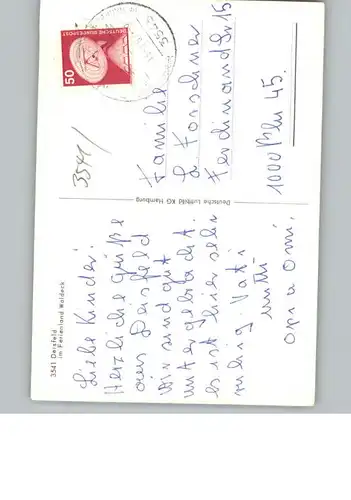 3541 Deisfeld
im Ferienland Waldeck
Liebe Kinder!
Herzliche Grüße
aus Deisfeld
Wir sind gut
untergebracht.
Es ist hier sehr
ruhig. Vati
Mutti
Opi u Omi.
Deutsche Luftbild KG Hamburg
3541/
50
DEUTSCHE BUNDESPOST
Familie
L Forschner
Ferdinandstr 15
1000 Bln 45.